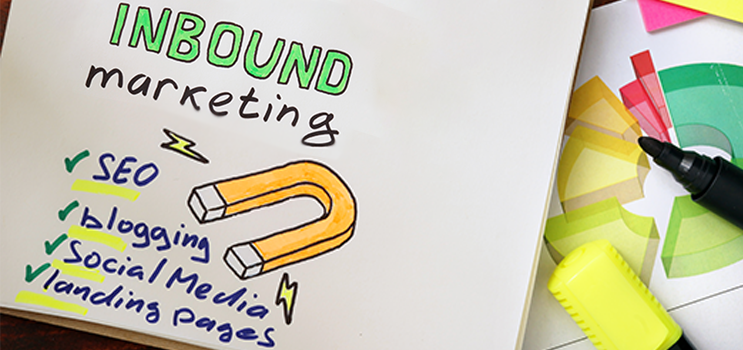 INBOUND
marketing
SEO
blogging
Social Media
landing pages